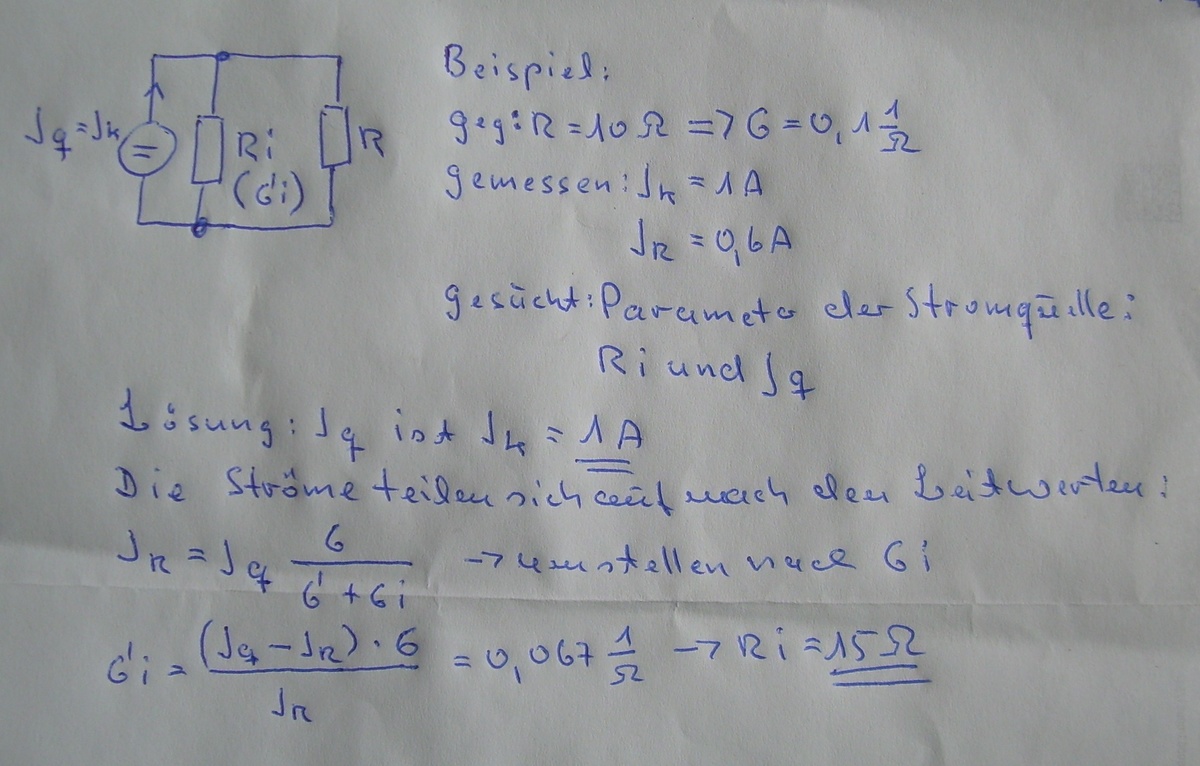 Jq = Jk
Ri
(Gi)
R
Beispiel:
geg: R = 10 Ω => G = 0,1 1/Ω
gemessen: Jk = 1A
JR = 0,6A
gesucht: Parameter der Stromquelle:
Ri und Jq
Lösung: Jq ist Jk = 1A
Die Ströme teilen sich auf nach den Leitwerten:
JR = Jq G/(G + Gi) → umstellen nach Gi
Gi = (Jq - JR) · G / JR = 0,067 1/Ω → Ri = 15Ω